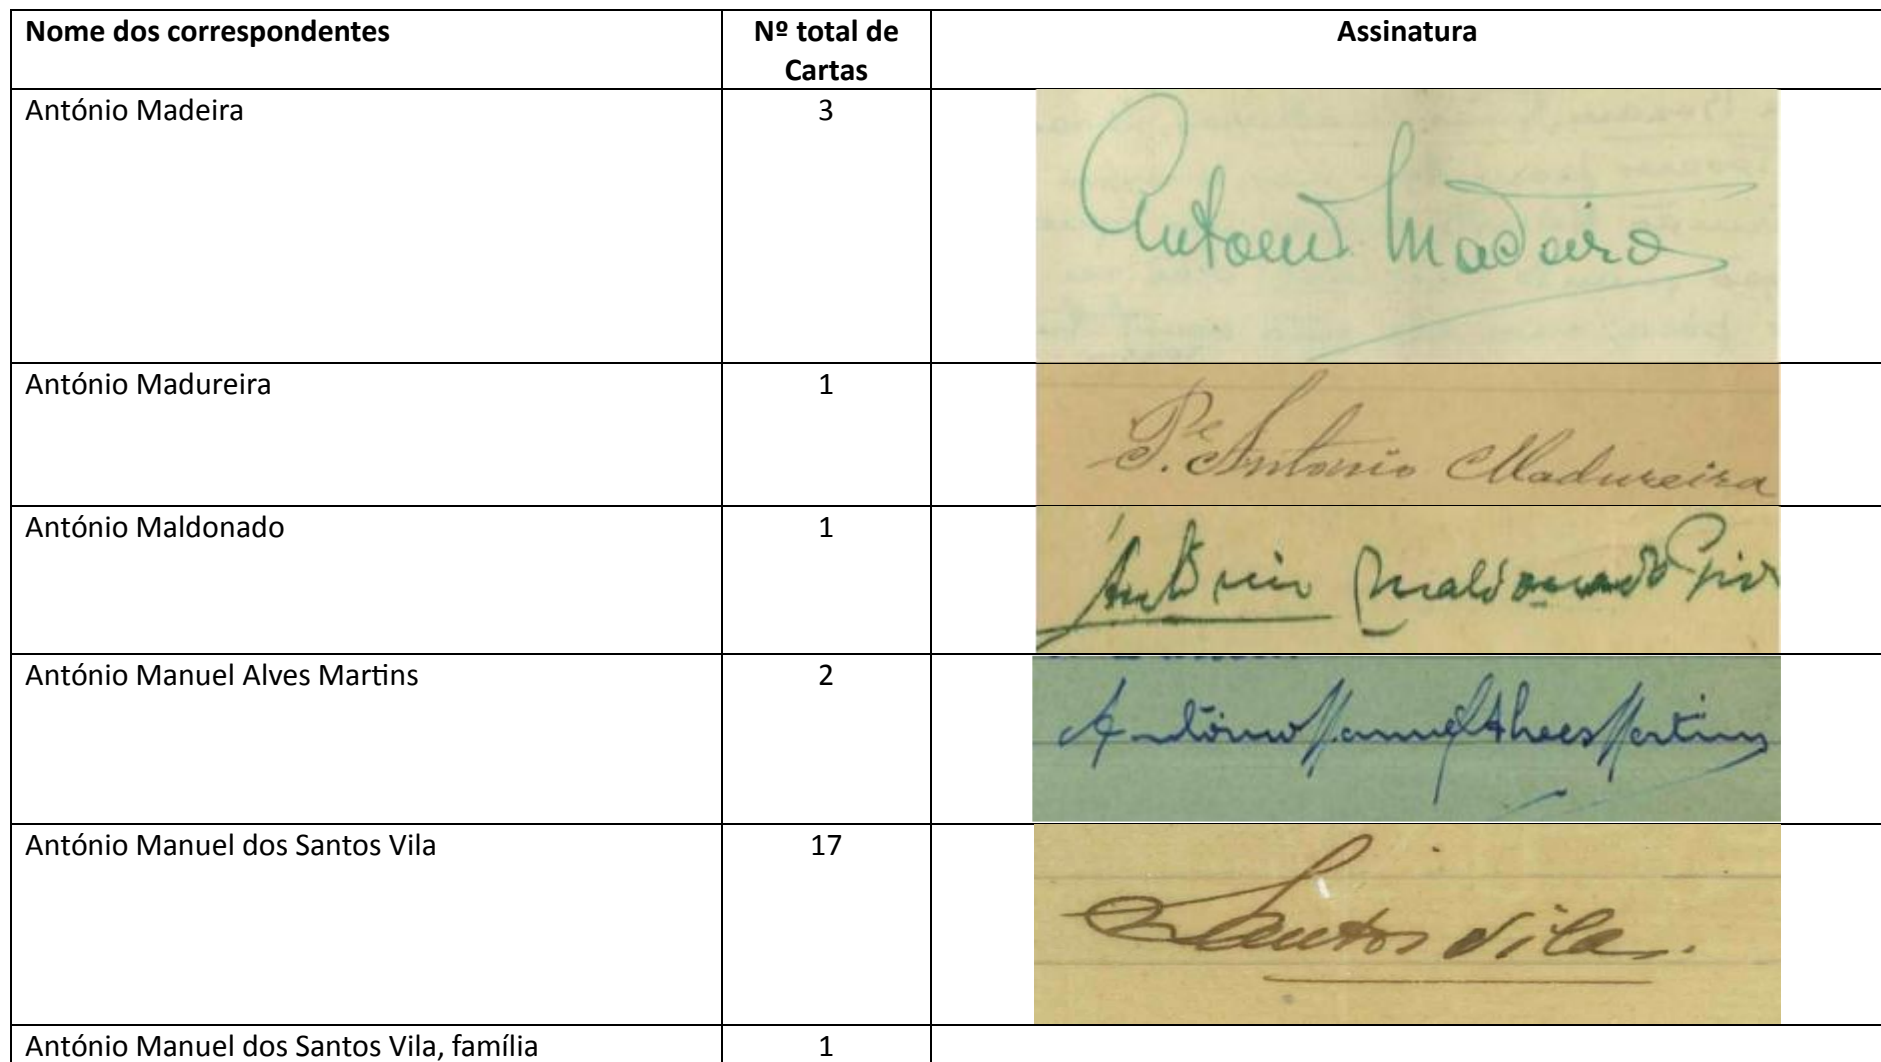 Nome dos correspondentes
Nº total de
Cartas
Assinatura
António Madeira
3
Antonio Madeira
António Madureira
1
Pe. Antonio Madureira
António Maldonado
1
António Maldonado
António Manuel Alves Martins
2
António Manuel Alves Martins
António Manuel dos Santos Vila
17
Santos Vila.
António Manuel dos Santos Vila, família
1